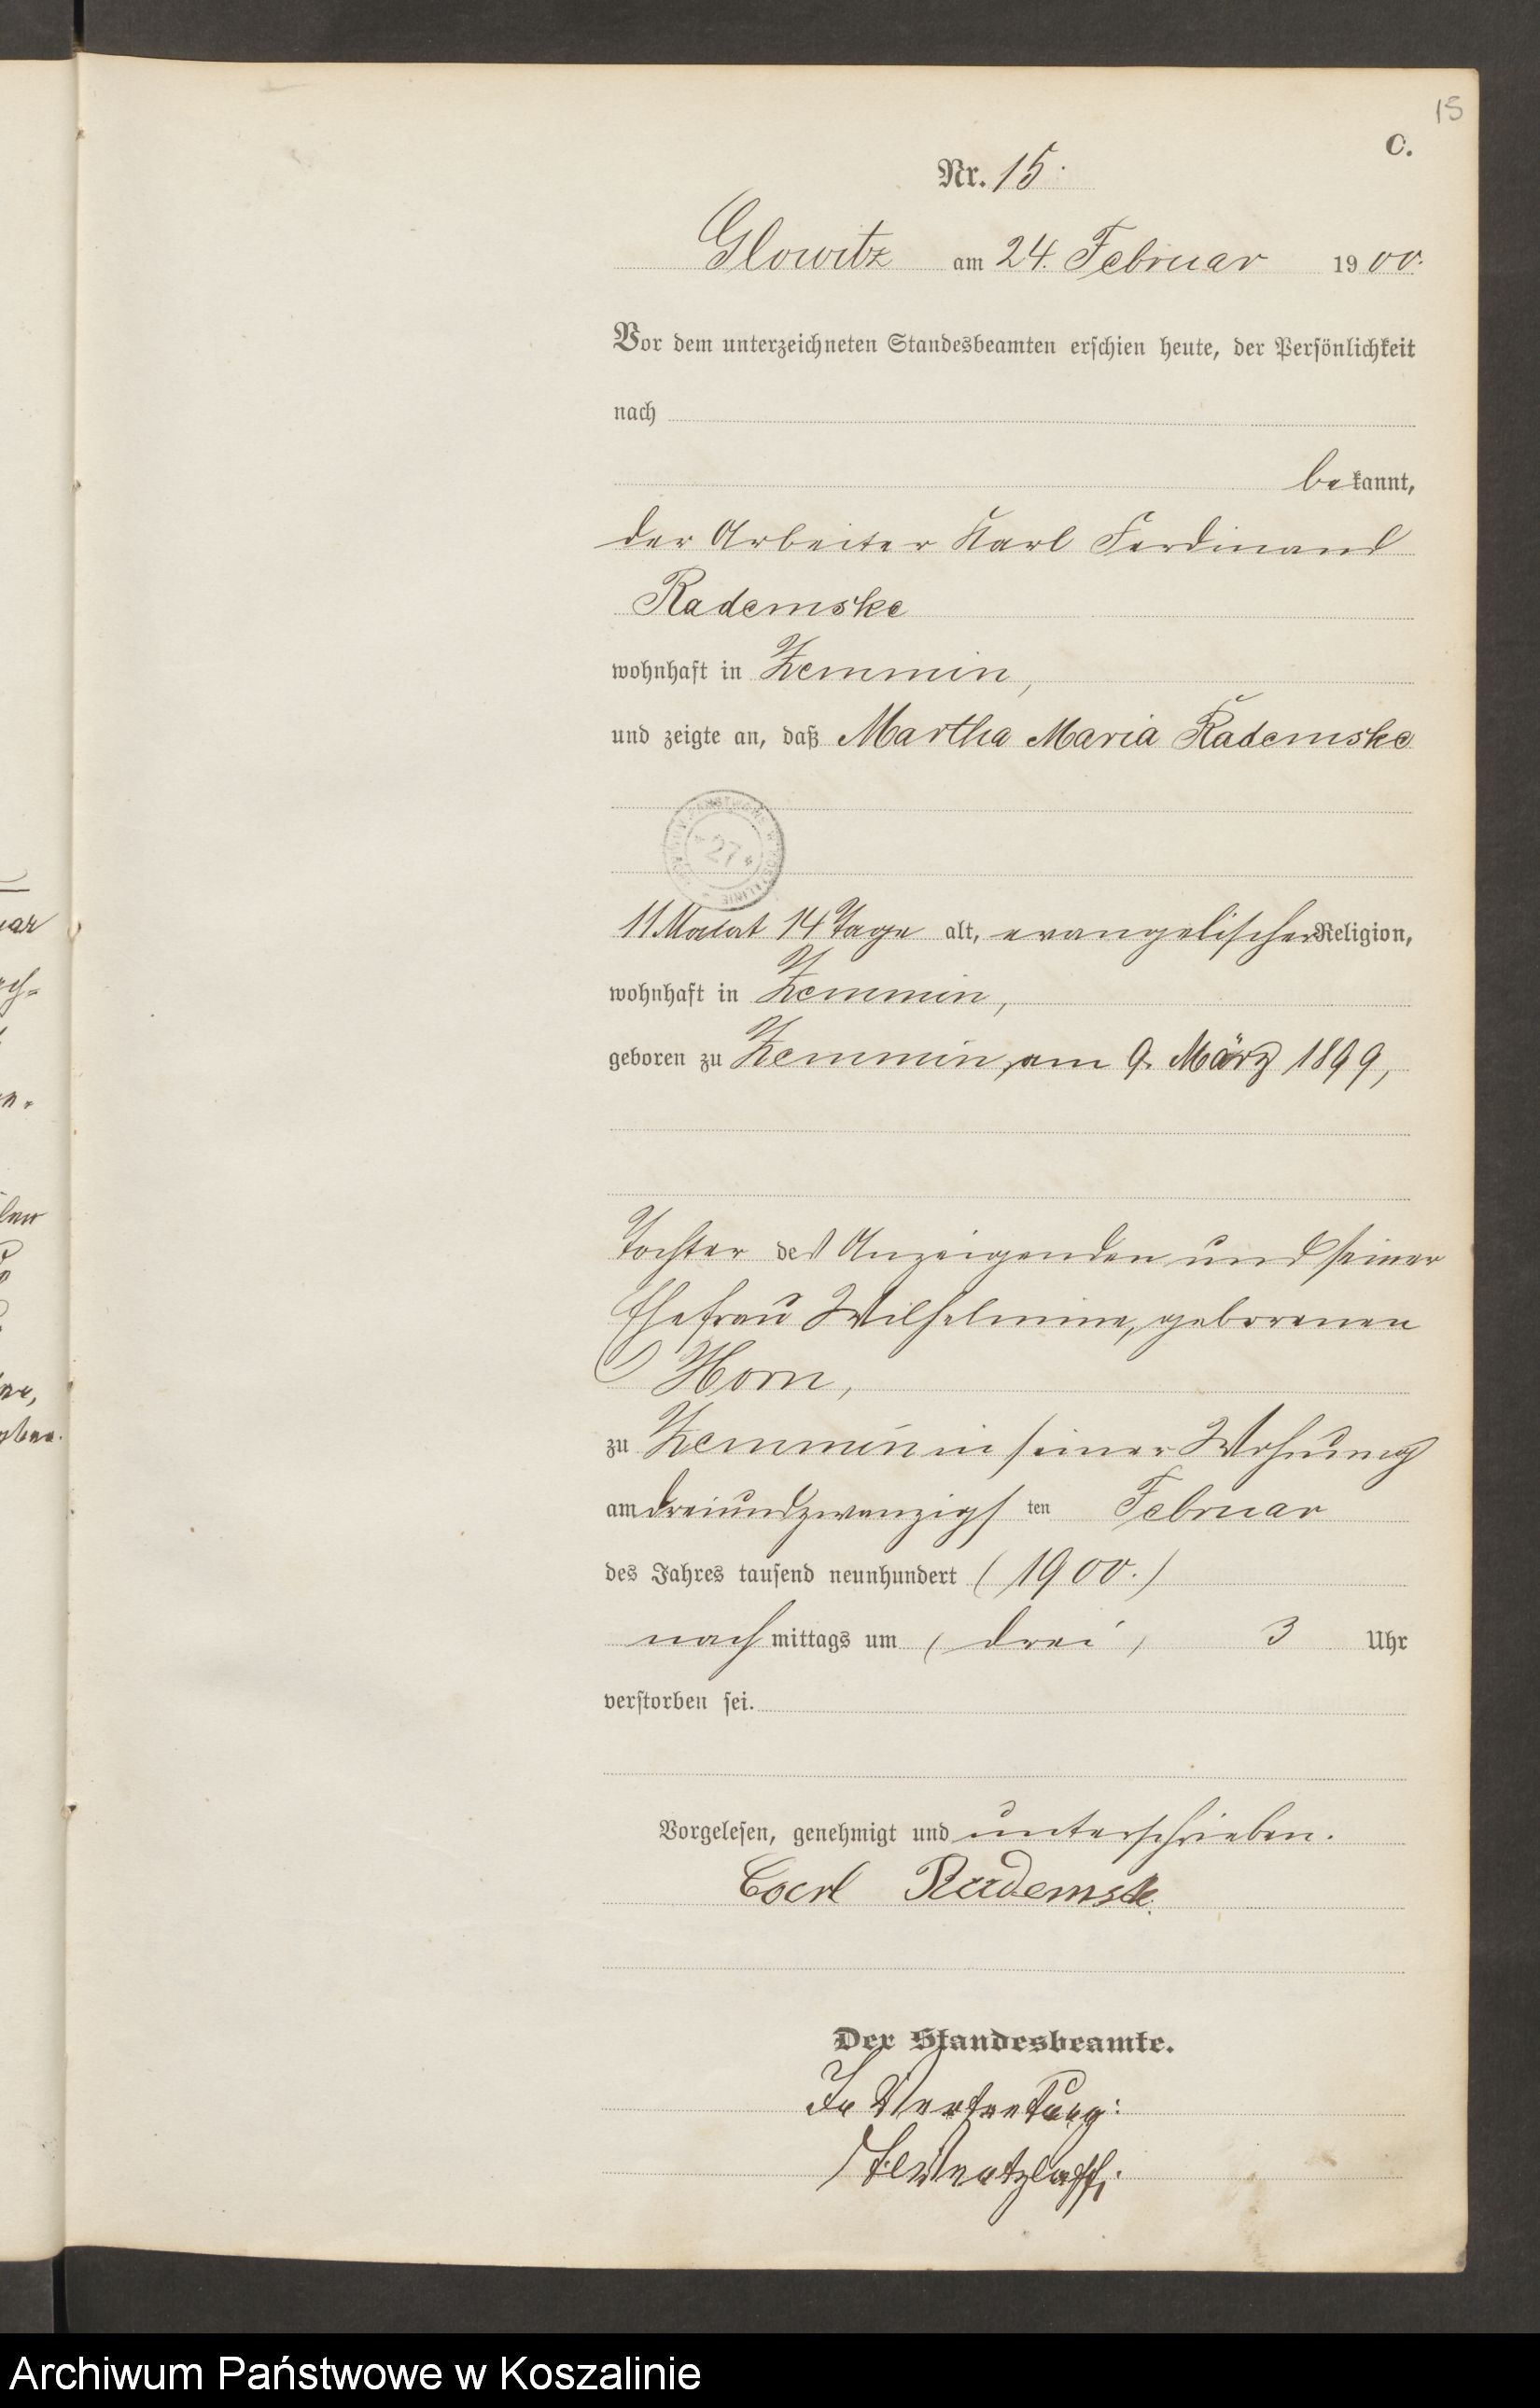 15
C.
Nr. 15.
Glowitz am 24. Februar 1900.
Vor dem unterzeichneten Standesbeamten erschien heute, der Persönlichkeit
nach
bekannt,
der Arbeiter Karl Ferdinand
Rademske
wohnhaft in Zemmin,
und zeigte an, daß Martha Maria Rademske
27
11 Monat 14 Tage alt, evangelischer Religion,
wohnhaft in Zemmin,
geboren zu Zemmin, am 9. März 1899,
Tochter des Anzeigenden und seiner
Ehefrau Wilhelmine, geborenen
Horn,
zu Zemmin in seiner Wohnung
am dreiundzwanzigsten Februar
des Jahres tausend neunhundert (1900.)
nachmittags um (drei) 3 Uhr
verstorben sei.
Vorgelesen, genehmigt und unterschrieben.
Carl Rademske
Der Standesbeamte.
In Vertretung:
Archiwum Państwowe w Koszalinie